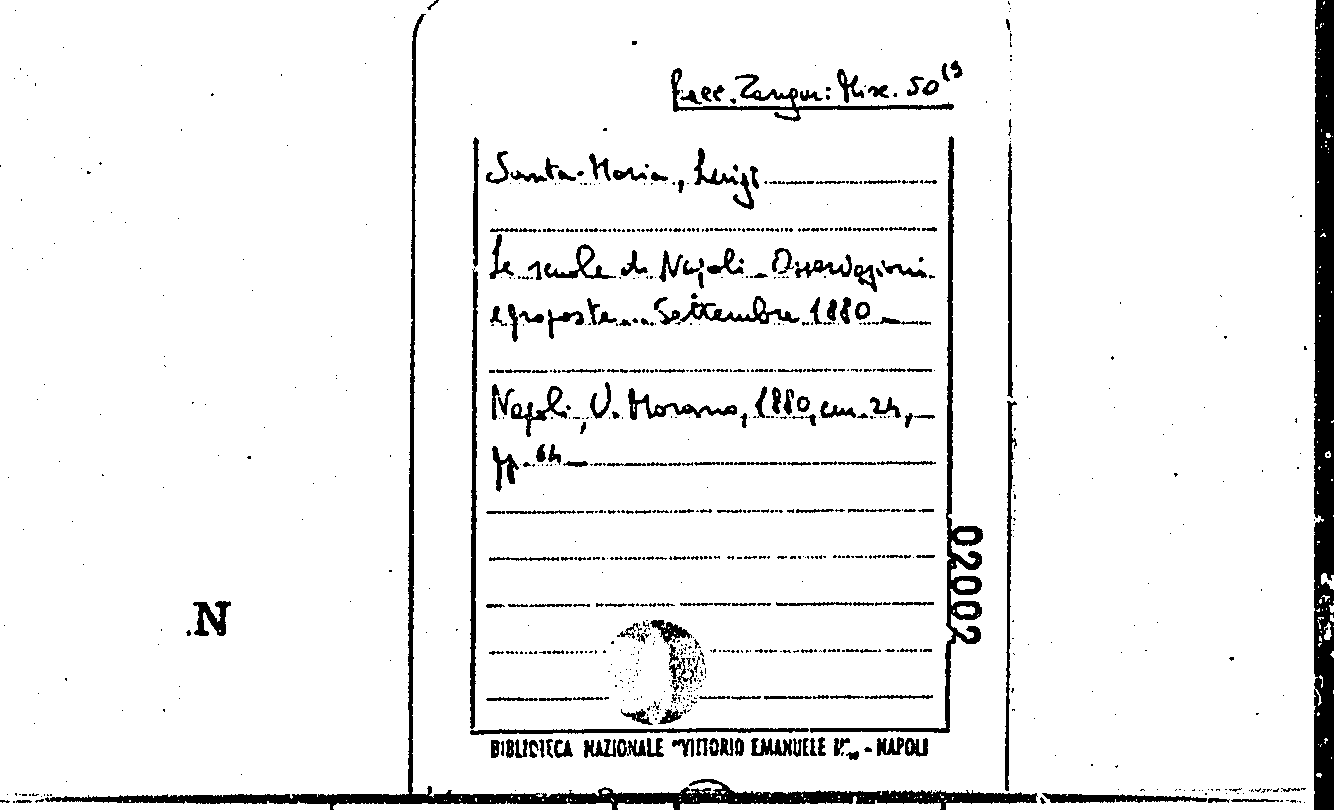 Racc. Zangar: Misc. 50 (9
Santa-Maria, Luigi
Le scuole di Napoli - Osservazioni
e proposte... Settembre 1880 -
Napoli, V. Morano, 1880, cm. 24, -
pp. 64 -
02002
N
BIBLIOTECA NAZIONALE "VITTORIO EMANUELE III" - NAPOLI